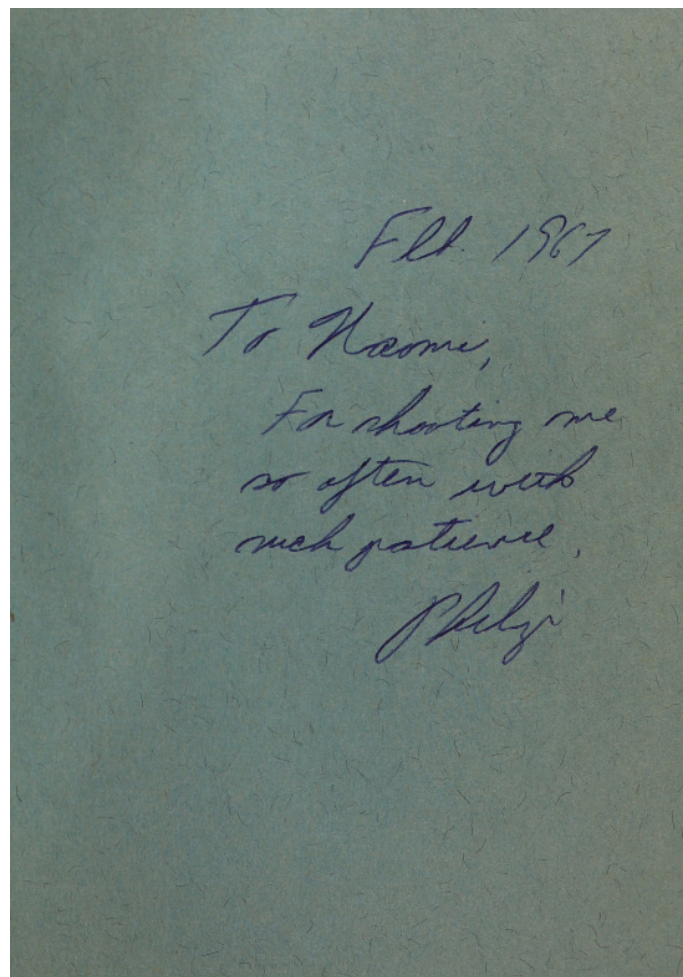 Feb. 1967
To Naomi,
For shooting me
so often with
such patience.
Philip